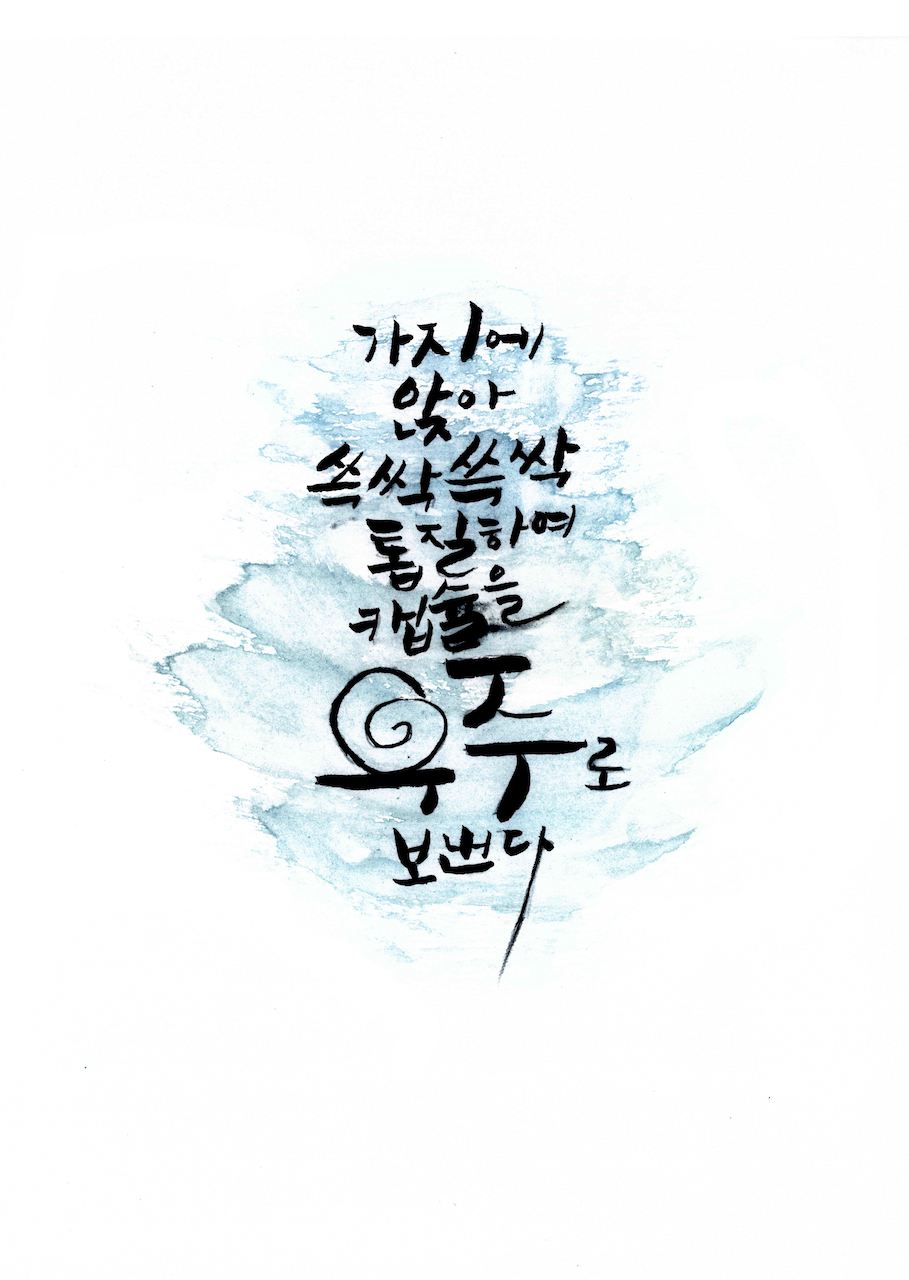 가지에
앉아
쓱싹쓱싹
톱질하여
캡슐을
우주로
보낸다